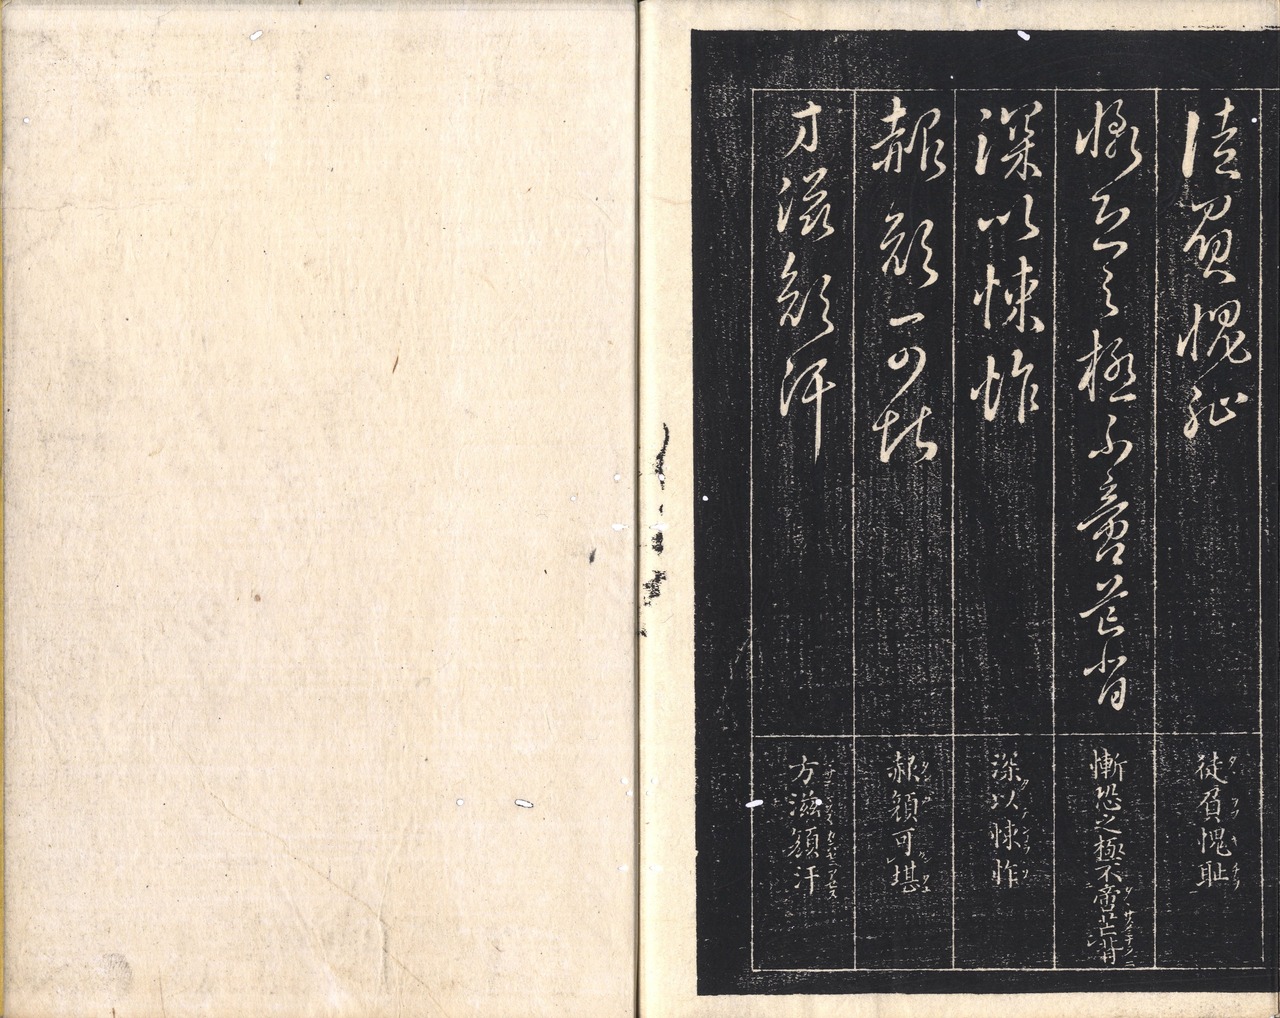 徒負愧耻
慚恐之極不啻芒背
深以悚怍
赧顔可堪
方滋顔汗
徒負愧耻
慚恐之極不啻芒背
深以悚怍
赧顔可堪
方滋顔汗